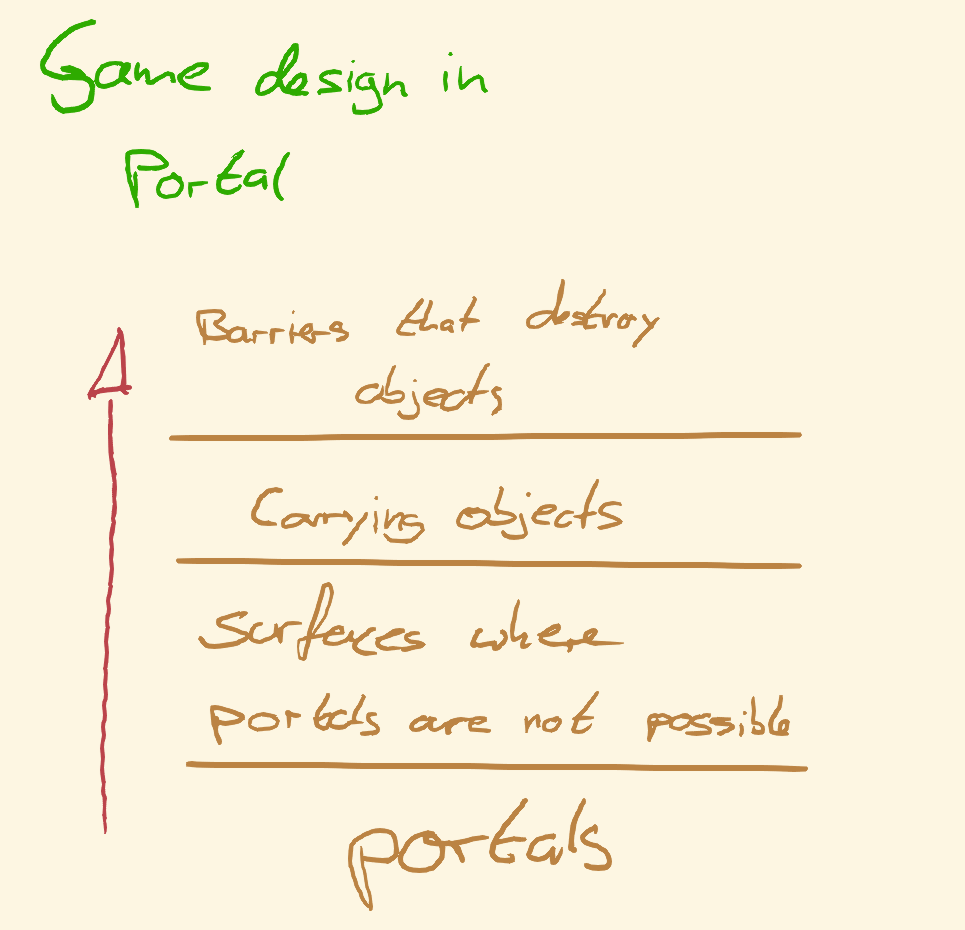 Game design in
Portal
Barriers that destroy
objects
Carrying objects
Surfaces where
portals are not possible
portals